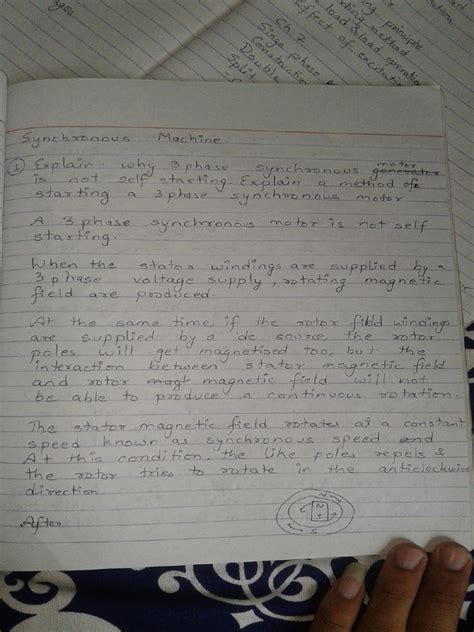 ages
principle
starting method
load & load operation
Effect of excitation
Ch 2
Singe phase
Double
Construction
Split
Synchronous Machine.
① Explain why 3 phase synchronous generator motor
is not self starting. Explain a method of
starting a 3 phase synchronous motor
A 3 phase synchronous motor is not self
starting.
When the stator windings are supplied by a
3 phase voltage supply, rotating magnetic
field are produced.
At the same time, if the rotor field windings
are supplied by a dc source, the rotor
poles will get magnetised too, but the
interaction between stator magnetic field
and rotor magt magnetic field will not
be able to produce a continuous rotation.
The stator magnetic field rotates at a constant
speed known as synchronous speed. and
At this condition, the like poles repels &
the rotor tries to rotate in the anticlockwise
direction.
After
N
N
S
S